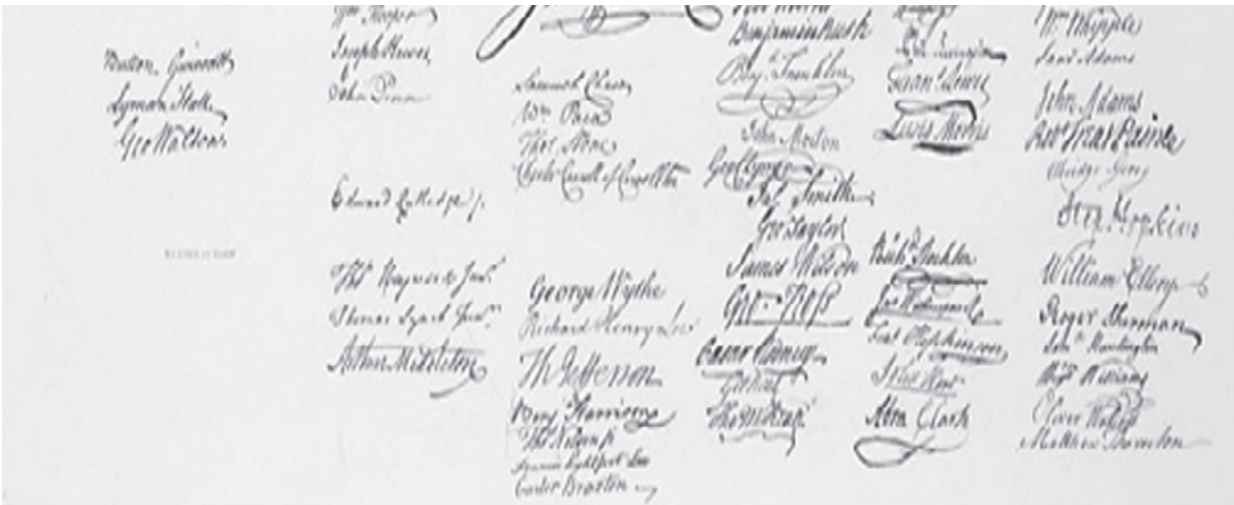 Button Gwinnett
Lyman Hall
Geo Walton
Wm Hooper
Joseph Hewes,
John Penn
Edward Rutledge /.
Thos Heyward Junr.
Thomas Lynch Junr.
Arthur Middleton
Samuel Chase
Wm Paca
Thos Stone
Charles Carroll of Carrollton
George Wythe
Richard Henry Lee
Th Jefferson
Benj Harrison
Thos Nelson jr
Francis Lightfoot Lee
Carter Braxton
Robt Morris
Benjamin Rush
Benj. Franklin
John Morton
Geo Clymer
Jas. Smith
Geo Taylor
James Wilson
Geo. Ross
Caesar Rodney
Geo Read
Tho M:Kean
Phil. Livingston
Frans. Lewis
Lewis Morris
Richd. Stockton
Jno Witherspoon
Fras. Hopkinson
John Hart
Abra Clark
Wm Whipple
Saml Adams
John Adams
Robt Treat Paine
Elbridge Gerry
Step. Hopkins
William Ellery
Roger Sherman
Saml Huntington
Wm Williams
Oliver Wolcott
Matthew Thornton